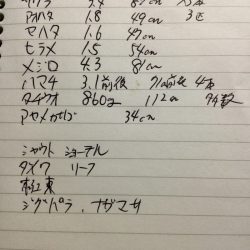 アカハタ 1.8 49cm 3匹
セハタ 1.6 47cm
ヒラメ 1.5 54cm
メジロ 4.3 81cm
ハマチ 3.1前後 71前後 4本
タチウオ 860g 112cm 多数
アヤメカサゴ 34cm
シャウト ショーテル
ダミワ リーフ
東
ジグパラ、ナザマサ